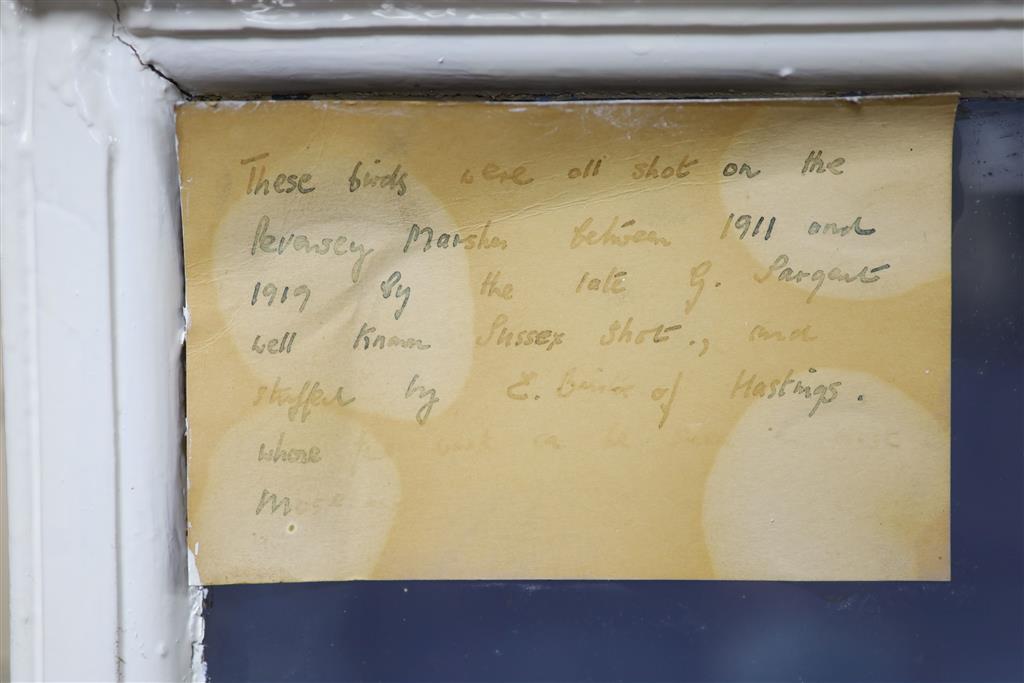 These birds were all shot on the
Pevensey Marshes between 1911 and
1919 by the late G. Sargent
well known Sussex shot., and
stuffed by E. of Hastings.
whose work can be